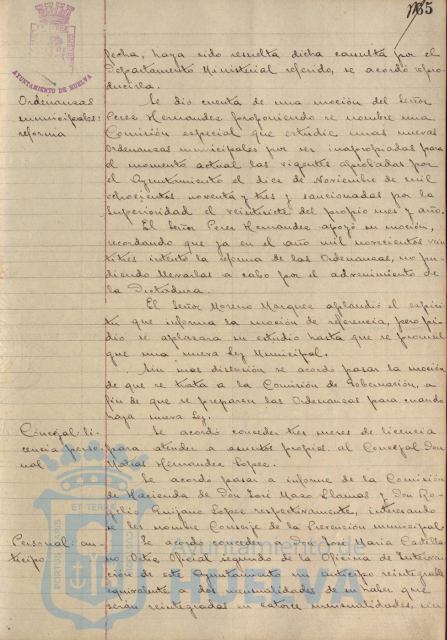 165
AYUNTAMIENTO DE HUELVA
fecha, haya sido resuelta dicha consulta por el
Departamento Ministerial referido, se acordó repro
ducirla.
Ordenanzas
municipales:
reforma
Se dió cuenta de una moción del Señor
Perez Hernandez proponiendo se nombre una
Comisión especial que estudie unas nuevas
Ordenanzas municipales por ser inapropiadas para
el momento actual las vigentes aprobadas por
el Ayuntamiento el diez de Noviembre de mil
ochocientos noventa y tres y sancionadas por la
Superioridad el veintisiete del propio mes y año.
El Señor Perez Hernandez apoyó su moción,
recordando que ya en el año mil novecientos vein
titres intentó la reforma de las Ordenanzas, no pu-
diendo llevarlas a cabo por el advenimiento de
la Dictadura.
El Señor Moreno Marquez aplaudió el espiri-
tu que informa la moción de referencia, pero pi-
dió se aplazara su estudio hasta que se promul
gue una nueva Ley Municipal.
Sin mas discusión se acordó pasar la moción
de que se trata a la Comisión de Gobernación, a
fin de que se preparen las Ordenanzas para cuando
haya nueva ley.
Concejal: li-
cencia perso-
nal
Se acordó conceder tres meses de licencia
para atender a asuntos propios al Concejal Don
Matias Hernandez Lopez.
Se acordó pasar a informe de la Comisión
de Hacienda de Don José Mazo Llamas y Don Ro-
gelio Guijano Lopez respectivamente, interesando
se les nombre Conserje de la Prevención municipal.
Personal: an-
ticipo
Se acordó conceder a Don José Maria Castilla
no Ortiz Oficial segundo de la Oficina de Interven
ción de este Ayuntamiento un anticipo reintegrable
equivalente a dos mensualidades de su haber que
serán reintegradas en catorce mensualidades, sin
PORTUS MARIS
ET TERRAE
Ayuntamiento de
HUELVA